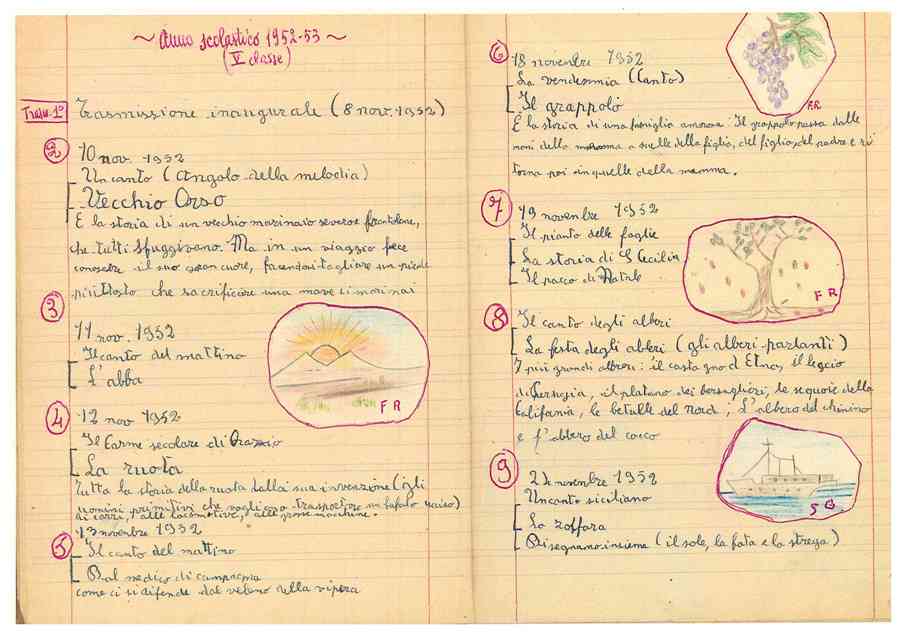 ~ Anno scolastico 1952-53 ~
(V classe)
Trasm. 1°
Trasmissione inaugurale (8 nov. 1952)
2
10 nov. 1952
Un canto (Angolo della melodia)
Vecchio Orso
È la storia di un vecchio marinaio severo e brontolone,
che tutti sfuggivano. Ma in un viaggio fece
conoscere il suo gran cuore, facendosi tagliare un piede
piuttosto che sacrificare una nave
3
11 nov. 1952
Il canto del mattino
L'abba
F R
4
12 nov 1952
Il Carme secolare di Orazio
La ruota
Tutta la storia della ruota dalla sua invenzione (gli
uomini primitivi che vogliono trasportare un bufalo ucciso)
ai carri, alle locomotive, alle grosse macchine.
5
13 novembre 1952
Il canto del mattino
Dal medico di campagna
come ci si difende dal veleno della vipera
6
18 novembre 1952
La vendemmia (canto)
Il grappolo
F.R.
È la storia di una famiglia amorosa: Il grappolo passa dalle
mani della mamma a quelle della figlia, del figlio, del padre e ri
torna poi in quelle della mamma.
7
19 novembre 1952
Il pianto delle foglie
La storia di S Cecilia
Il pacco di Natale
F R
8
Il canto degli alberi
La festa degli alberi (gli alberi parlanti)
I più grandi alberi: il castagno d Etna, il leccio
di Perugia, il platano dei bersaglieri, le sequoie della
Califania, le betulle del nord, L'albero del chinino
e l'albero del cocco
9
novembre 1952
Un canto siciliano
La zolfara
Disegnamo insieme (il sole, la fata e la strega)
S B